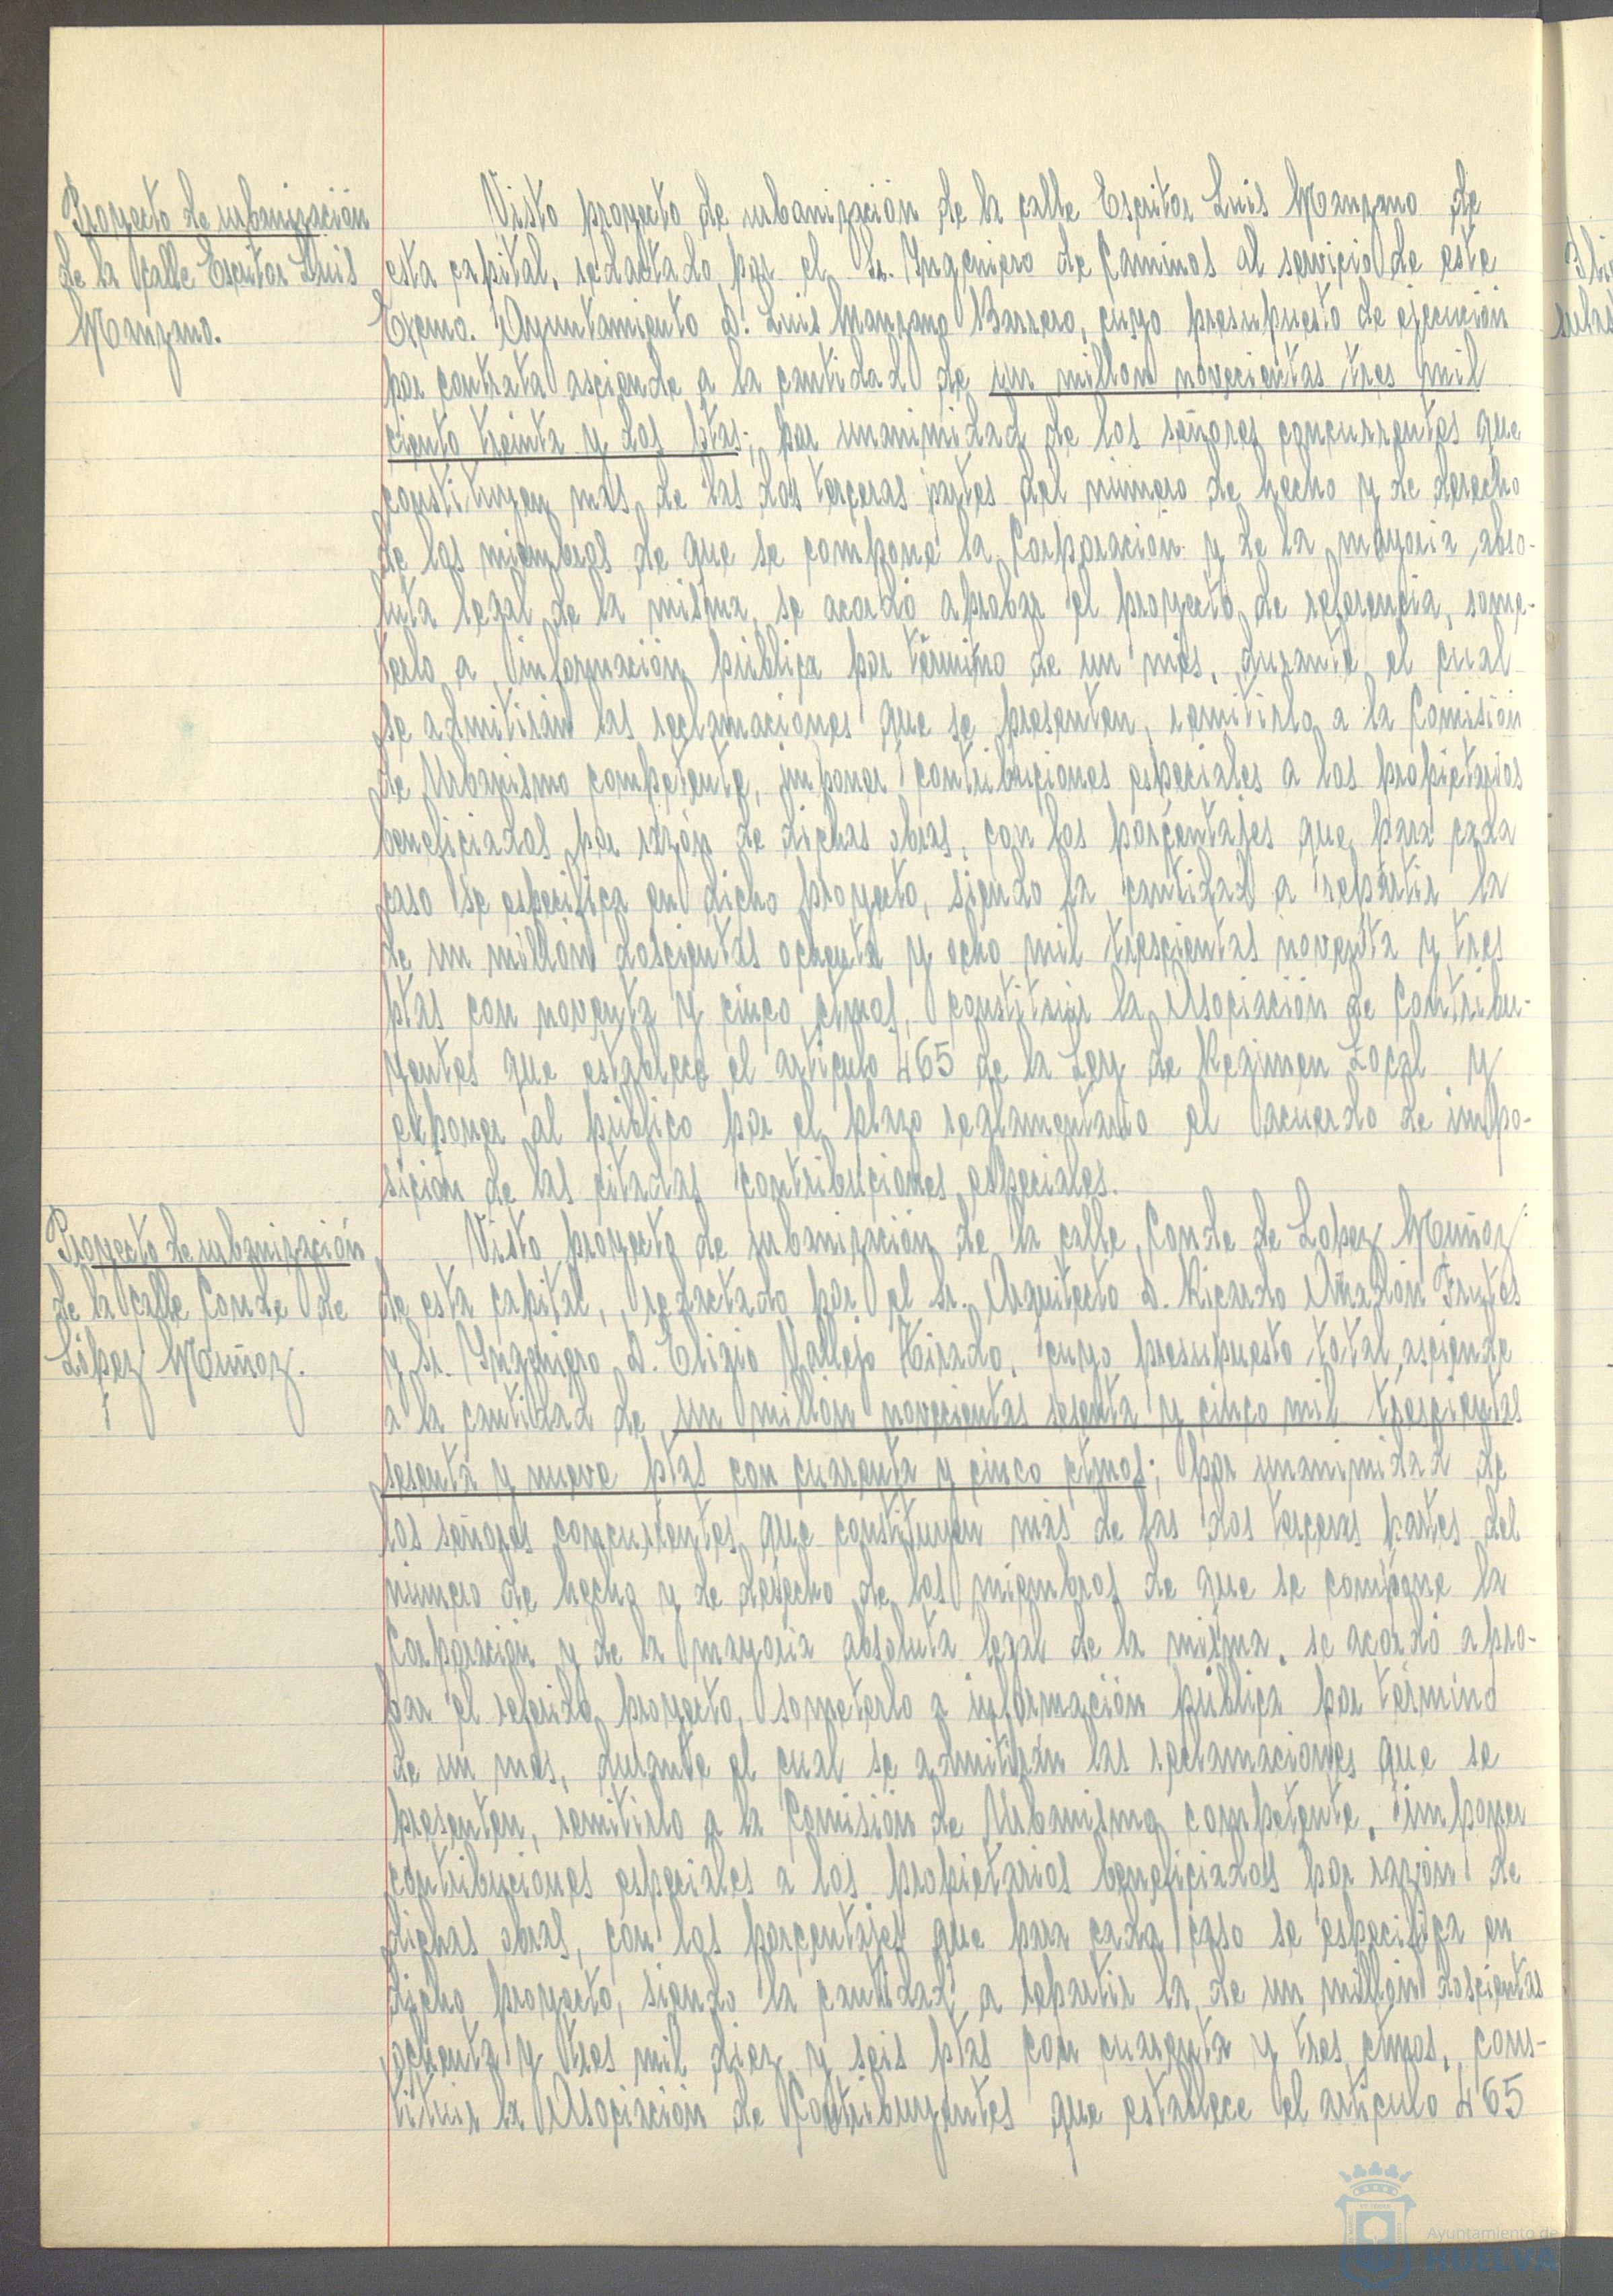 Proyecto de urbanización
de la calle Escritor Luis
Manzano.
Visto proyecto de urbanización de la calle Escritor Luis Manzano de
esta capital, redactado por el Sr. Ingeniero de Caminos al servicio de este
Excmo. Ayuntamiento D. Luis Manzano Barrero, cuyo presupuesto de ejecución
por contrata asciende a la cantidad de un millon novecientas tres mil
ciento treinta y dos ptas; por unanimidad de los señores concurrentes que
constituyen más de las dos terceras partes del número de hecho y de derecho
de los miembros de que se compone la Corporación y de la mayoria abso-
luta legal de la misma, se acordó aprobar el proyecto de referencia, some-
terlo a información pública por término de un mes, durante el cual
se admitirán las reclamaciones que se presenten, remitirlo a la Comisión
de Urbanismo competente, imponer contribuciones especiales a los propietarios
beneficiados por razón de dichas obras, con los porcentajes que para cada
caso se especifica en dicho proyecto, siendo la cantidad a repartir la
de un millón doscientas ochenta y ocho mil trescientas noventa y tres
ptas con noventa y cinco ctmos, constituir la Asociación de Contribu-
yentes que establece el articulo 465 de la Ley de Regimen Local y
exponer al público por el plazo reglamentario el acuerdo de impo-
sición de las citadas contribuciones especiales.
Proyecto de urbanización
de la calle Conde de
López Muñoz.
Visto proyecto de urbanización de la calle Conde de Lopez Muñoz
de esta capital, redactado por el Sr. Arquitecto D. Ricardo Anadón Frutos
y Sr. Ingeniero D. Eligio Vallejo Hirado, cuyo presupuesto total asciende
a la cantidad de un millon novecientas sesenta y cinco mil trescientas
sesenta y nueve ptas con cuarenta y cinco ctmos; por unanimidad de
los señores concurrentes que constituyen más de las dos terceras partes del
numero de hecho y de derecho de los miembros de que se compone la
Corporación y de la mayoria absoluta legal de la misma, se acordó apro-
bar el referido proyecto, someterlo a información pública por término
de un mes, durante el cual se admitirán las reclamaciones que se
presenten, remitirlo a la Comisión de Urbanismo competente, imponer
contribuciones especiales a los propietarios beneficiados por razón de
dichas obras, con los porcentajes que para cada caso se especifica en
dicho proyecto, siendo la cantidad a repartir la de un millón doscientas
ochenta y tres mil diez y seis ptas con cuarenta y tres ctmos, cons-
tituir la Asociación de Contribuyentes que establece el articulo 465
Ayuntamiento de
HUELVA